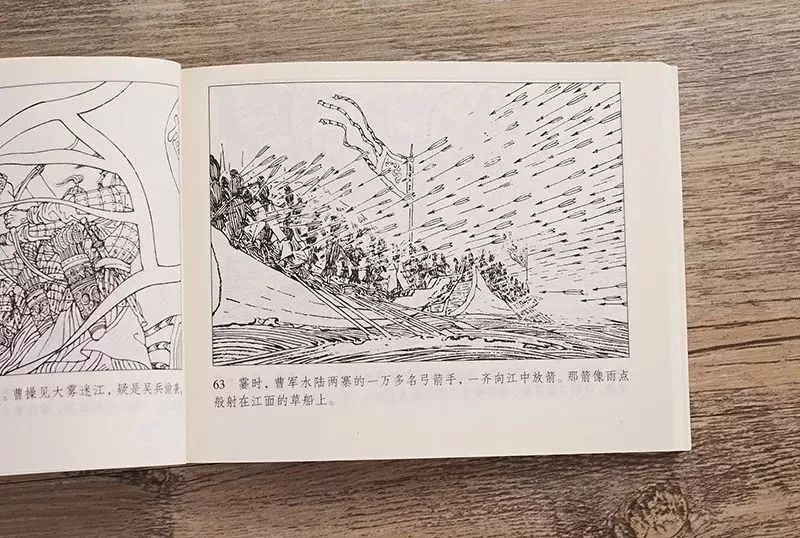 。曹操见大雾迷江，疑是吴兵偷袭，
63 霎时，曹军水陆两寨的一万多名弓箭手，一齐向江中放箭。那箭像雨点
般射在江面的草船上。